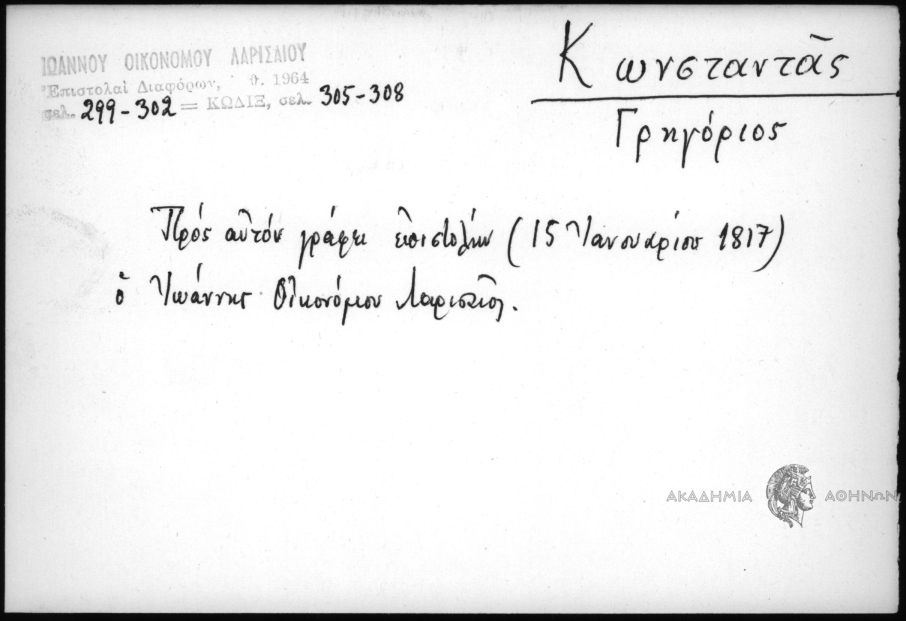 ΙΩΑΝΝΟΥ ΟΙΚΟΝΟΜΟΥ ΛΑΡΙΣΑΙΟΥ
Ἐπιστολαὶ Διαφόρων, θ. 1964
σελ. 299-302 = ΚΩΔΙΞ, σελ. 305-308
Κωνσταντᾶς
Γρηγόριος
Πρός αὐτόν γράφει ἐπιστολήν (15 Ἰανουαρίου 1817)
ὁ Ἰωάννης Οἰκονόμου Λαρισαῖος.
ΑΚΑΔΗΜΙΑ ΑΘΗΝΩΝ